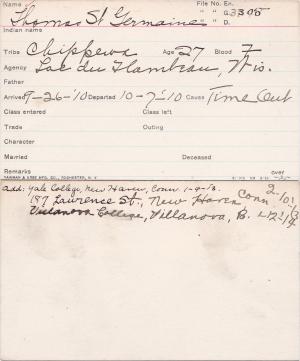 Name File En.
Thomas St Germaine " " G. 3305
" " D.
Indian name
Tribe Chippewa Age 27 Blood
Agency Lac du Flambeau, Wis.
Father
Arrived 9-26-'10 Departed 10-7-'10 Cause Time Out
Class entered Class left
Trade Outing
Character
Married Deceased
Remarks over
YAWMAN & ERBE MFG. CO., ROCHESTER, N. Y.
Add: Yale College, New Haven, Conn
187 Lawrence St., New Haven Conn 2-10-13
Villanova College, Villanova,